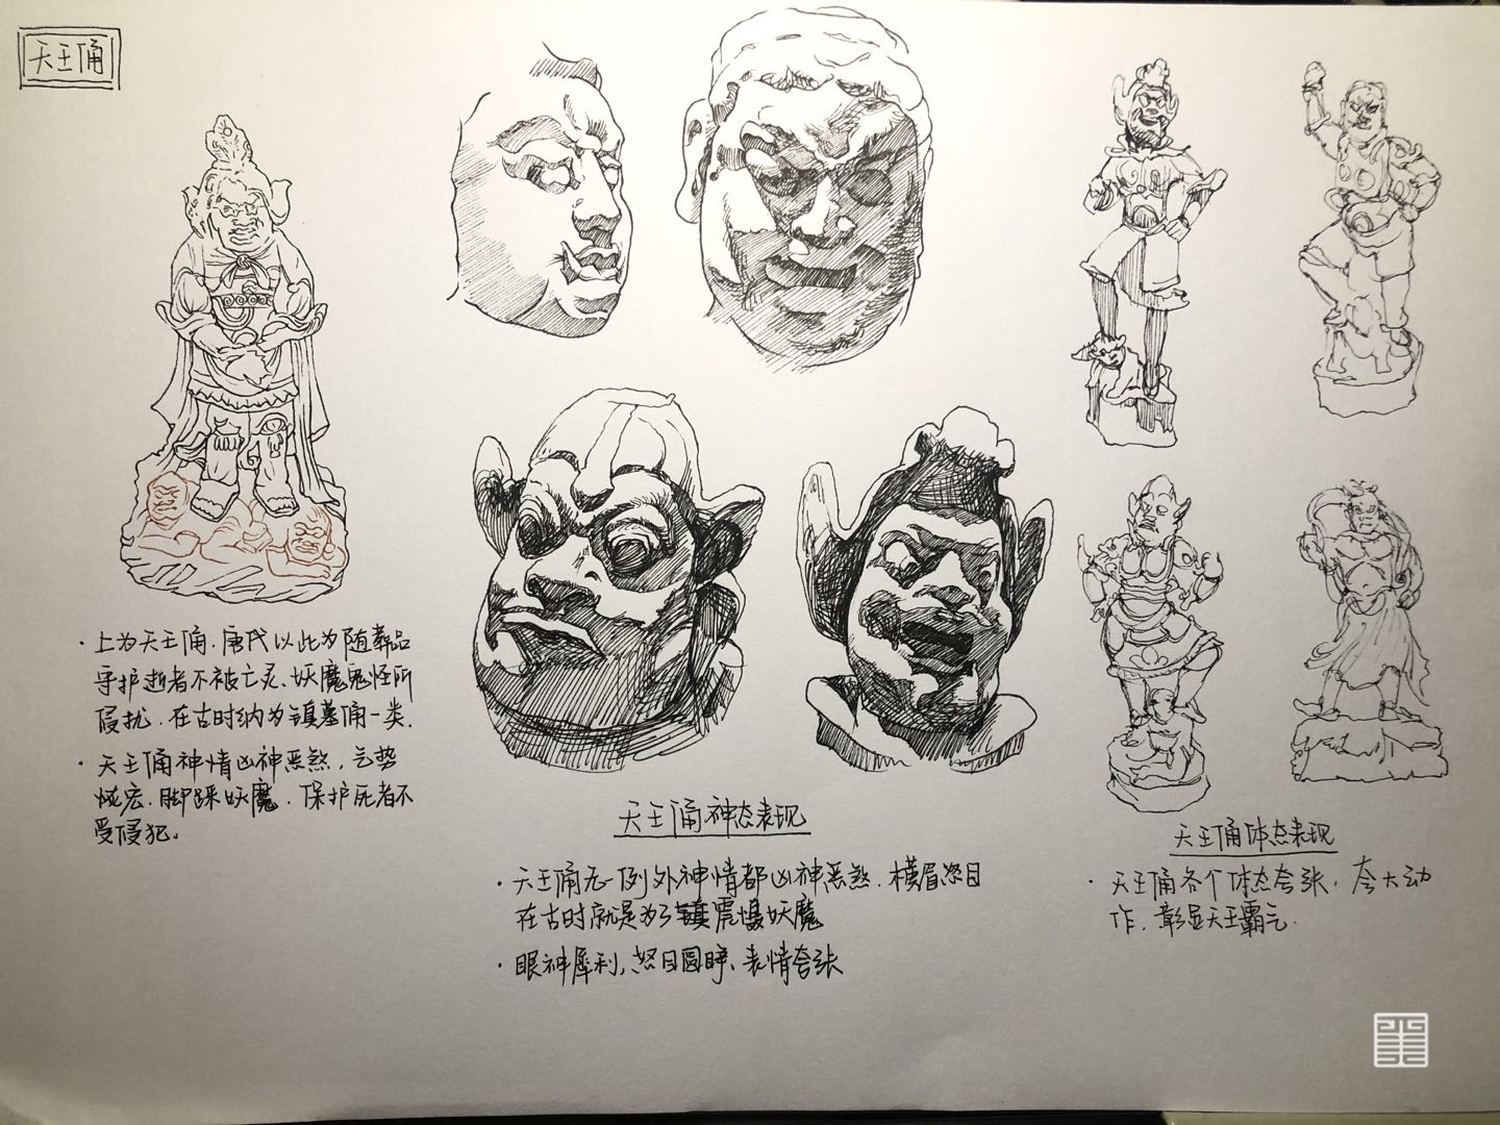 天王俑
·上为天王俑.唐代以此为随葬品
守护逝者不被亡灵、妖魔鬼怪所
侵扰.在古时纳为镇墓俑一类.
·天王俑神情凶神恶煞,气势
恢宏.脚踩妖魔.保护死者不
受侵犯。
天王俑神态表现
·天王俑无一例外神情都凶神恶煞.横眉怒目
在古时就是为了镇震慑妖魔
·眼神犀利,怒目圆睁、表情夸张
天王俑体态表现
·天王俑各个体态夸张,夸大动
作.彰显天王霸气.